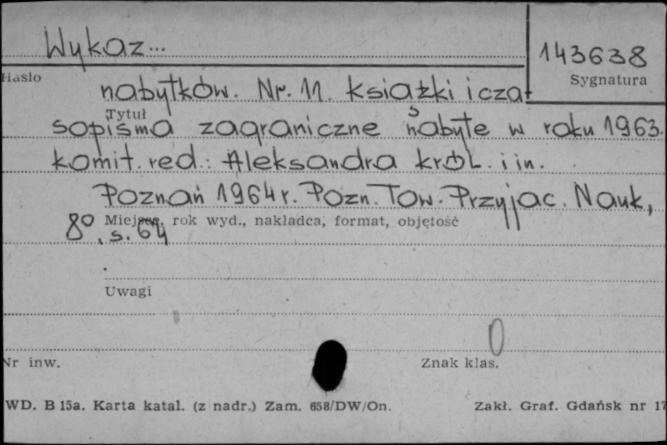 Wykaz...
143638
Hasło
Sygnatura
nabytków. Nr. 11. Książki i cza
Tytuł
sopisma zagraniczne nabyte w roku 1963.
komit. red.: Aleksandra Król. i in.
Poznań 1964 r. Pozn. Tow. Przyjac. Nauk,
Miejsce, rok wyd., nakładca, format, objętość
8°, s. 64
Uwagi
Nr inw.
Znak klas.
WD. B 15a. Karta katal. (z nadr.) Zam. 658/DW/On.
Zakł. Graf. Gdańsk nr 17